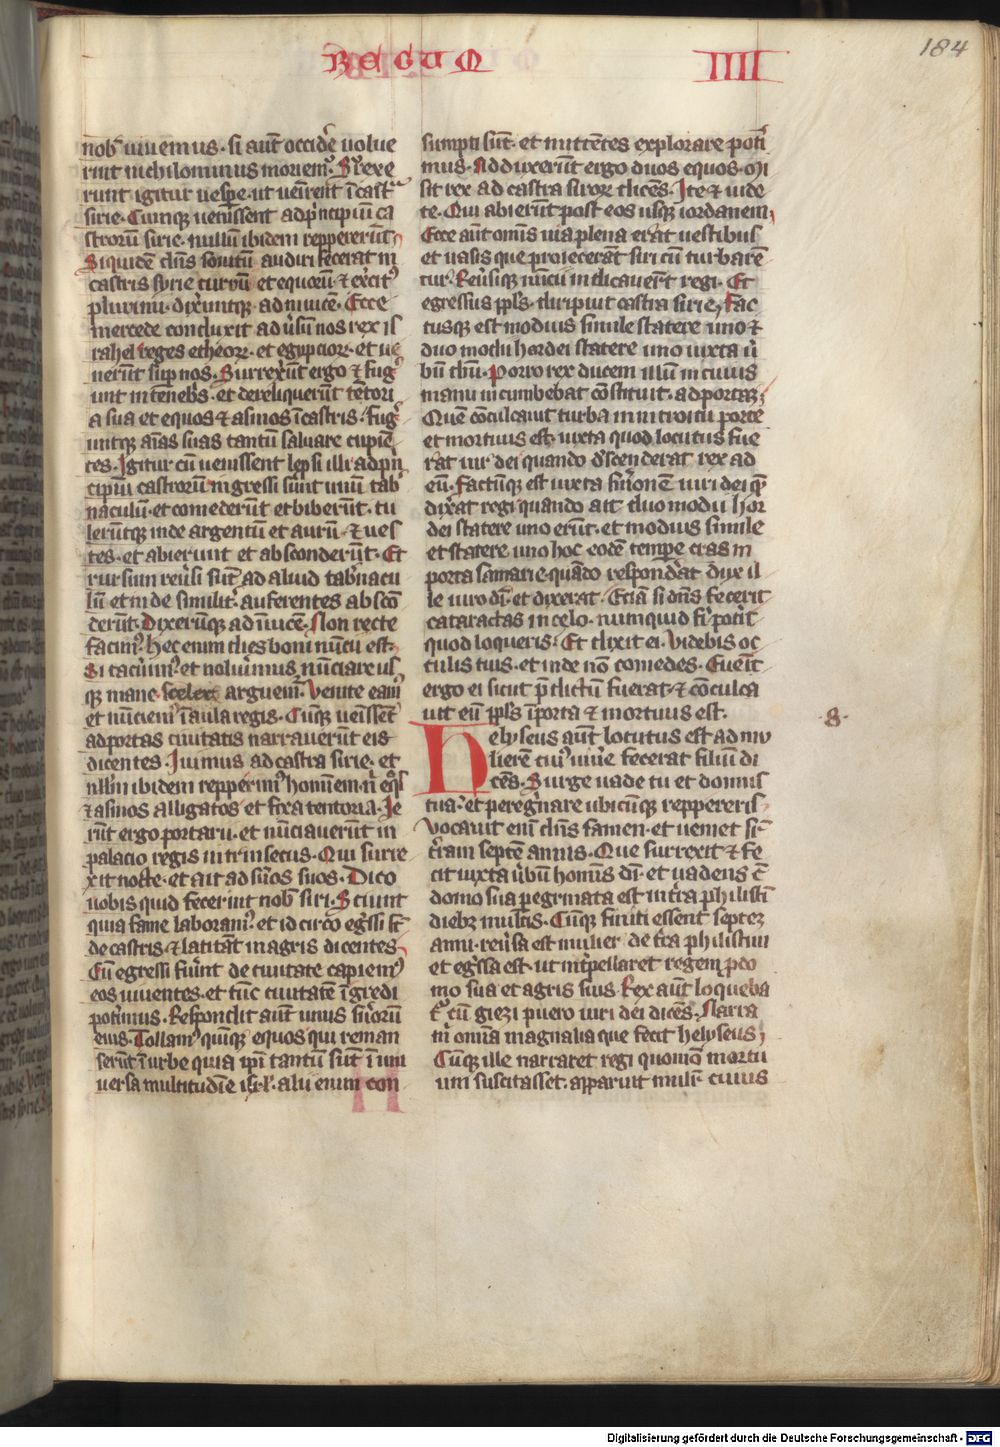 REGUM
IIII
184
nob̄ uiuemus. si aut̄ occidē uolue
rint nichilominus moriem᷒. Surrexe
runt igitur uespe. ut uen̄rent ī cast͛
sirie. Cumq̄ uenissent ad p̄ncipiū ca
strorū sirie. nullū ibidem reppererūt
Siquidē dn̄s sonitū audiri fecerat in
castris syrie curruū et equoꝝ ⁊ ex̄cit᷒
plurimi. dix̄untq̄. ad inuicē. Ecce
mercede conduxit adūsū nos rex is
rahel reges etheoꝝ. et egypcioꝝ. et ue
nerūt sup nos. Surrex̄ūt ergo ⁊ fug͛
unt in tenebͥs. et dereliquerūt tētori
a sua et equos ⁊ asinos ī castris. fug͛
untq̄ aīas suas tantū saluare cupiē
tes. Igitur cū uenissent lepsi illi ad p̄n
cipiū castrorū ingressi sunt unū tab͛
naculū. et comederūt et biberūt. tu
lerūtq̄ inde argentū et aurū ⁊ ues
tes. et abierunt et absconderūt. Et
rursum reūsi sūt ad aliud tab͛nacu
lū et inde similit͛ auferentes abscō
derūt. Dixerūtq̄ ad īuicē. Non recte
facim᷒. hec enim dies boni nūcii est.
Si tacūim᷒. et noluimus nūnciare us
q̄ mane sceleꝝ arguem᷒. Venite eam᷒
et nūciem᷒ ī aula regis. Cūq̄ uēissēt
ad portas ciuitatis narrauerūt eis
dicentes. Iuimus ad castra sirie. et
nllm̄ ibidem repperim᷒ hominem. n̄ eq̄s
⁊ asinos alligatos et fixa tentoria. Ie
rūt ergo portarii. et nūciauerūt in
palacio regis intrinsecus. Qui surre
xit nocte. et ait ad suos suos. Dico
uobis quid fecerint nob̄ siri. Sciunt
quia fame laboram᷒. et idcirco eḡssi sūt
de castris. ⁊ latitāt in agris dicentes
Cū egressi fūint de ciuitate capiem᷒
eos uiuentes. et tūc ciuitatē īgredi
potimus. Respondit aut̄ unus suorū
eius. Tollam᷒ quīq̄ equos qui reman
serūt ī urbe quia ip̄i tantū sūt ī uni
uersa multitudīe isr̄l. alii enim con
sumpti sūt. et mittētes explorare poti
mus. Adduxerūt ergo duos equos. Mi
sit rex ad castra siroꝝ dicēs. Ite ⁊ uide
te. Qui abierūt post eos usq̄ iordanem
Ecce aut̄ omīs uia plena erat uestibus
et uasis que proiecerāt siri cū turbarē
tur. Reūsiq̄ nūcii indicauerūt regi. Et
egressus ppl̄s. diripiut castra sirie. Fac
tusq̄ est modius simile statere uno ⁊
duo modii hordei statere uno iuxta ū
bū dn̄i. Porro rex ducem illū in cuius
manu incumbebat cōstituit. ad portaꝫ
Quē cōculcauit turba in introitu porte
et mortuus est. iuxta quod locutus fue
rat uir dei quando d̄scenderat rex ad
eū. Factūq̄ est iuxta sermonē uiri dei q̄
dixat regi quando ait duo modii hor
dei statere uno erūt. et modius simile
et statere uno hoc eodē tempe cras in
porta samarie. quādo respondat dux il
le uiro di. et dixerat. Eciā si dn̄s fecerit
cataractas in celo. numquid fi poterit
quod loqueris. Et dixit ei. Videbis oc
culis tuis. et inde nō comedes. Euēit
ergo ei sicut p̄dictū fuerat. ⁊ cōculca
uit eū ppl̄s ī porta ⁊ mortuus est.
8.
Helyseus aūt locutus est ad mu
lierē cui᷒ uiūe fecerat filiū di
cēs. Surge uade tu et domus
tua. et peregrinare ubicūq̄ reppereris
Vocauit enī dn̄s famen. et ueniet sup
t̄ram septē annis. Que surrexit ⁊ fe
cit iuxta ūbū hominis dī. et uadens c̄
domo sua pegrinata est in t̄ra philistī
diebꝫ multis. Cūq̄ finiti essent septeꝫ
anni. reūsa est mulier de t̄ra philistiu
et eḡssa est. ut int̄pellaret regem p̄ do
mo sua et agris suis. Rex aūt loqueba
t͛ cū giezi puero uiri dei dicēs. Narra
m̄ omīa magnalia que fecit helyseus
Cūq̄ ille narraret regi quomō mortu
um suscitasset. apparuit muli͛ cuius
Digitalisierung gefördert durch die Deutsche Forschungsgemeinschaft - DFG